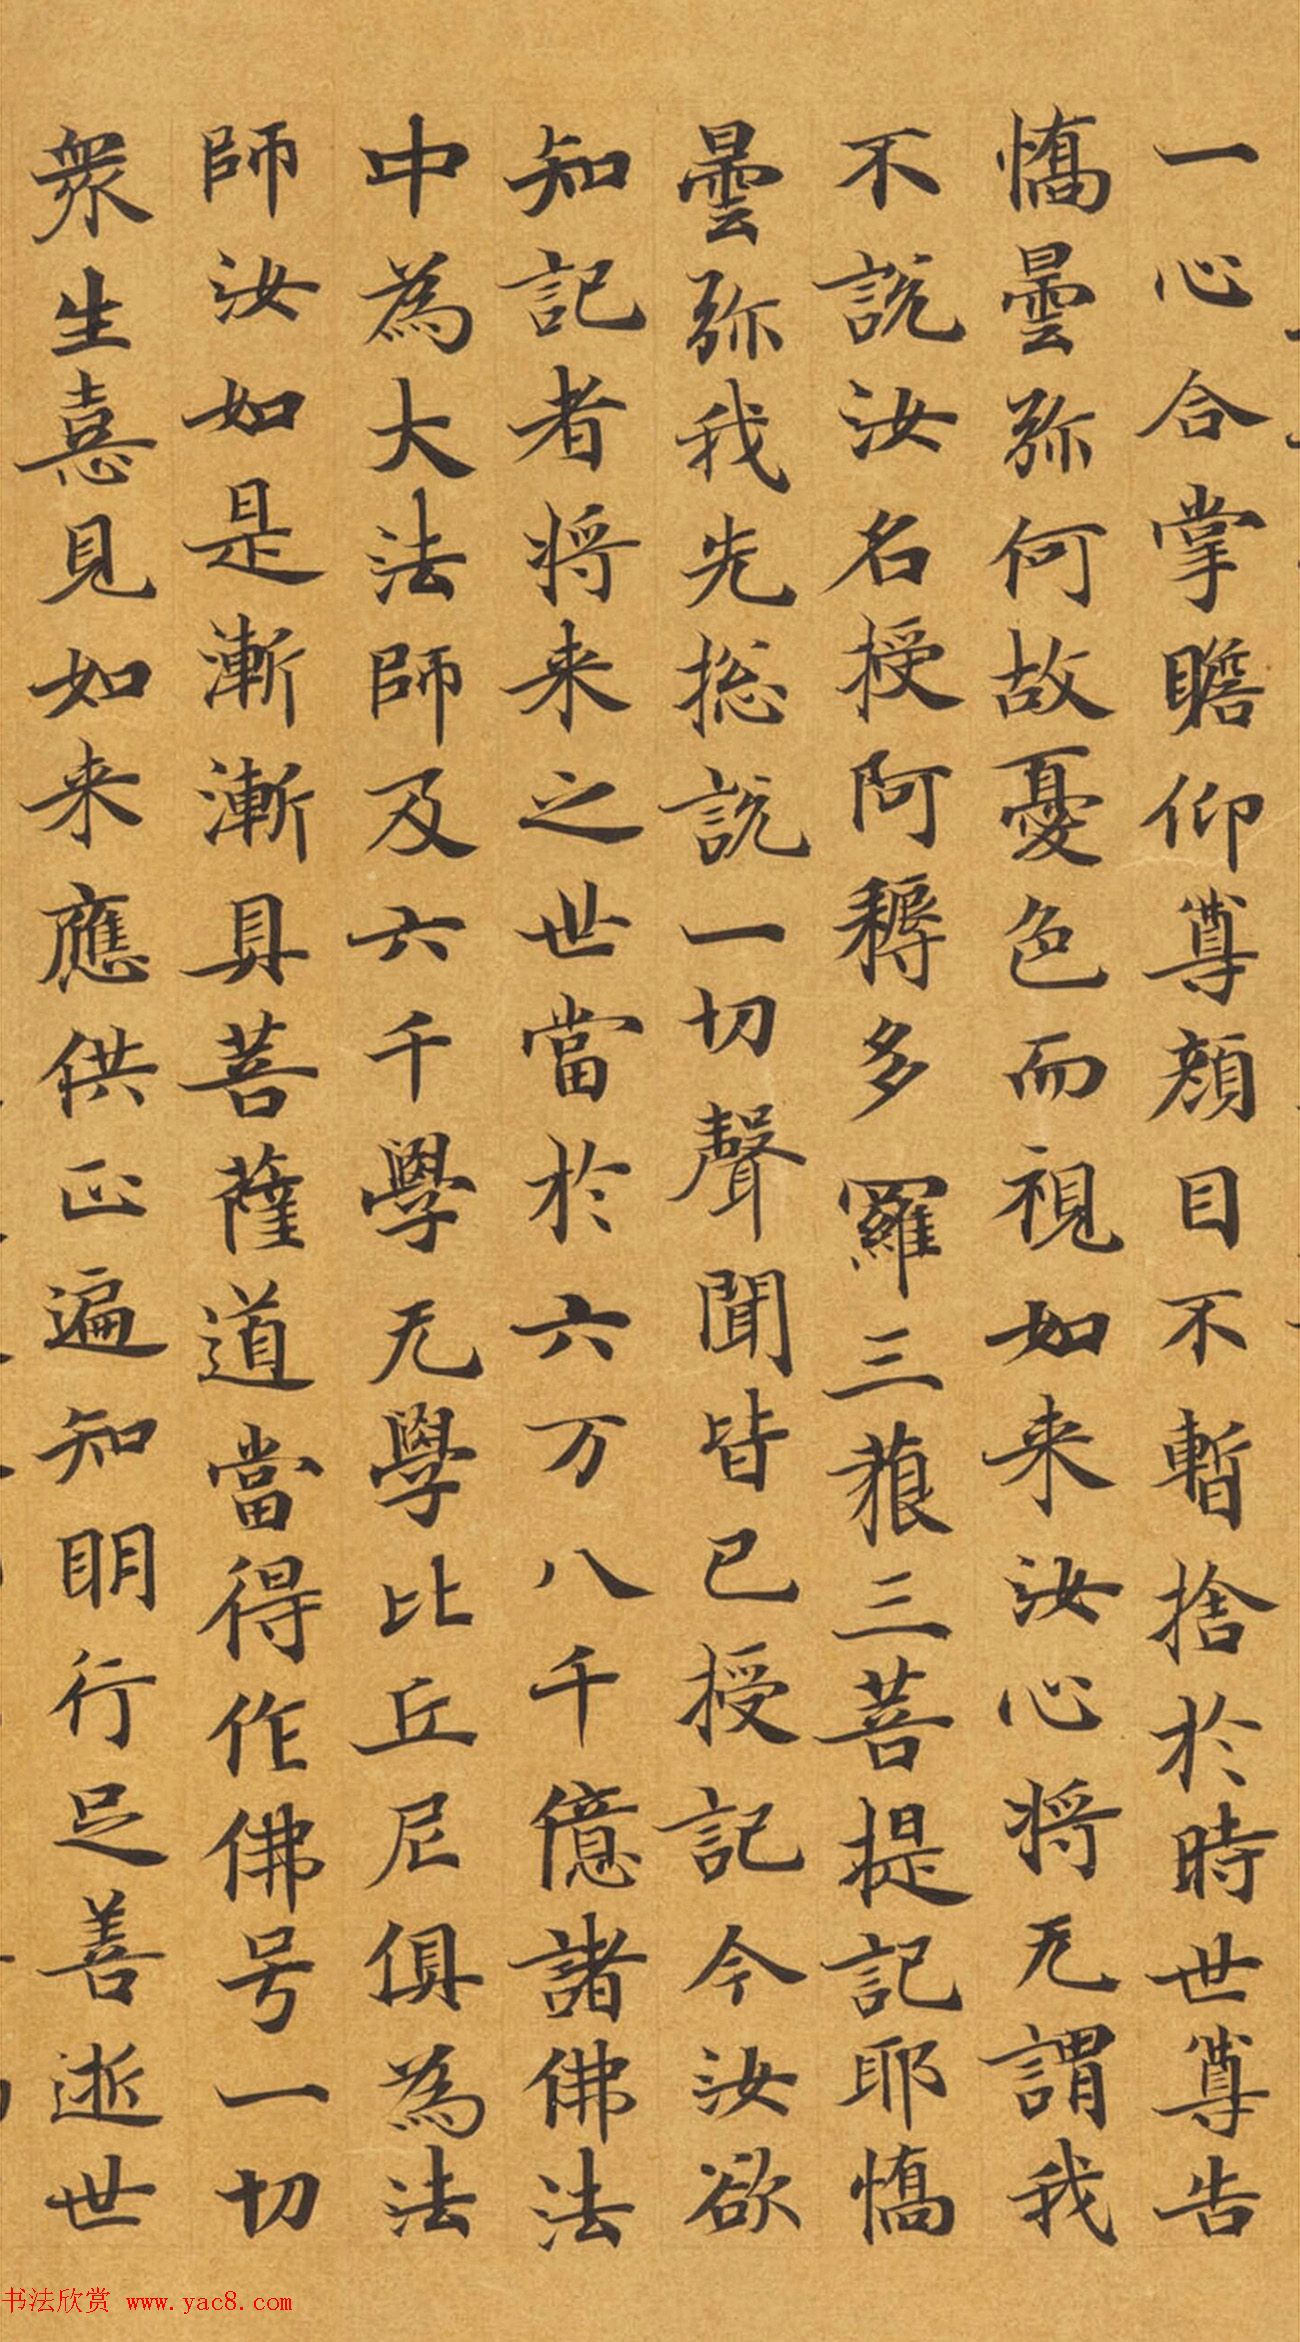 一心合掌瞻仰尊顏目不暫捨於時世尊告
憍曇弥何故憂色而視如来汝心将无謂我
不說汝名授阿耨多羅三藐三菩提記耶憍
曇弥我先捴說一切聲聞皆已授記今汝欲
知記者将来之世當於六万八千億諸佛法
中為大法師及六千學无學比丘尼俱為法
師汝如是漸漸具菩薩道當得作佛号一切
衆生憙見如来應供正遍知明行足善逝世
书法欣赏 www.yac8.com